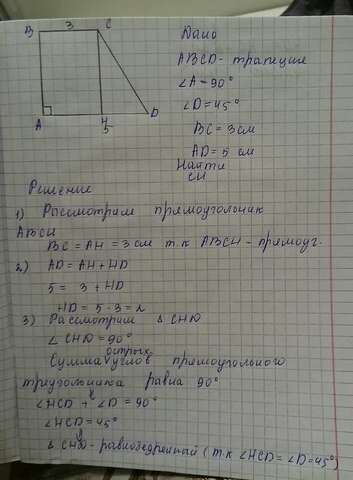 B 3 C
A H D
5
Дано
ABCD - трапеция
∠A = 90°
∠D = 45°
BC = 3 см
AD = 5 см
Найти
CH
Решение
1) Рассмотрим прямоугольник
ABCH
BC = AH = 3 см т.к ABCH - прямоуг.
2) AD = AH + HD
5 = 3 + HD
HD = 5 - 3 = 2
3) Рассмотрим Δ CHD
∠ CHD = 90°
острых
Сумма углов прямоугольного
треугольника равна 90°
∠HCD + ∠D = 90°
∠HCD = 45°
Δ CHD - равнобедренный (т.к ∠HCD = ∠D = 45°)